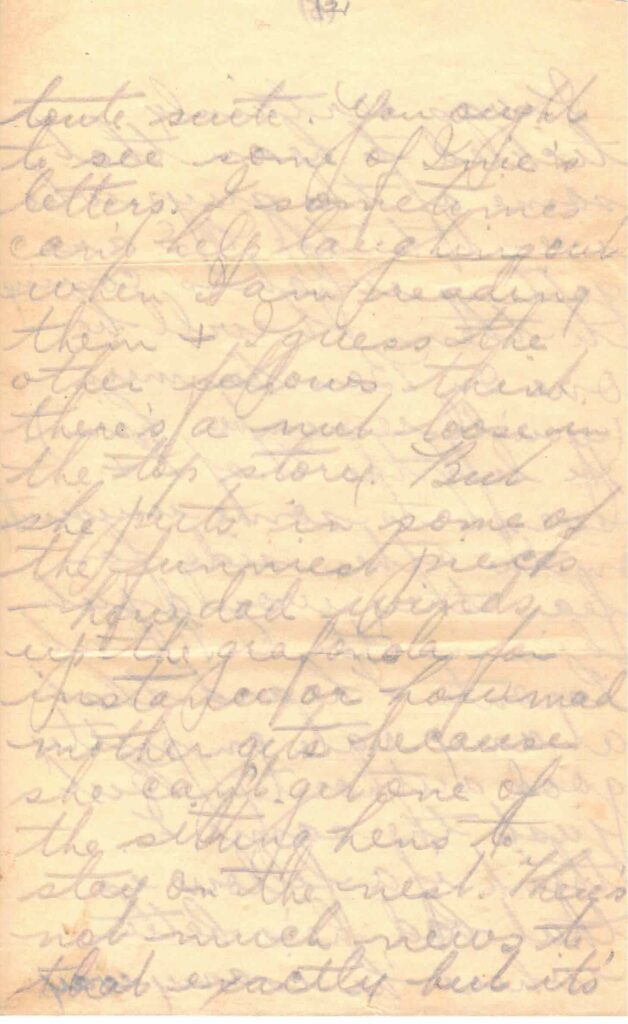 (2)
toute suite. You ought
to see some of Ivie's
letters. I sometimes
can't help laughing out
when I am reading
them + I guess the
other fellows think
there's a nut loose in
the top story. But
she puts in some of
the funniest pieces
- how dad winds
up the grafonola for
instance or how mad
mother gets because
she can't get one of
the setting hens to
stay on the nest. There's
not much news to
that exactly but it's